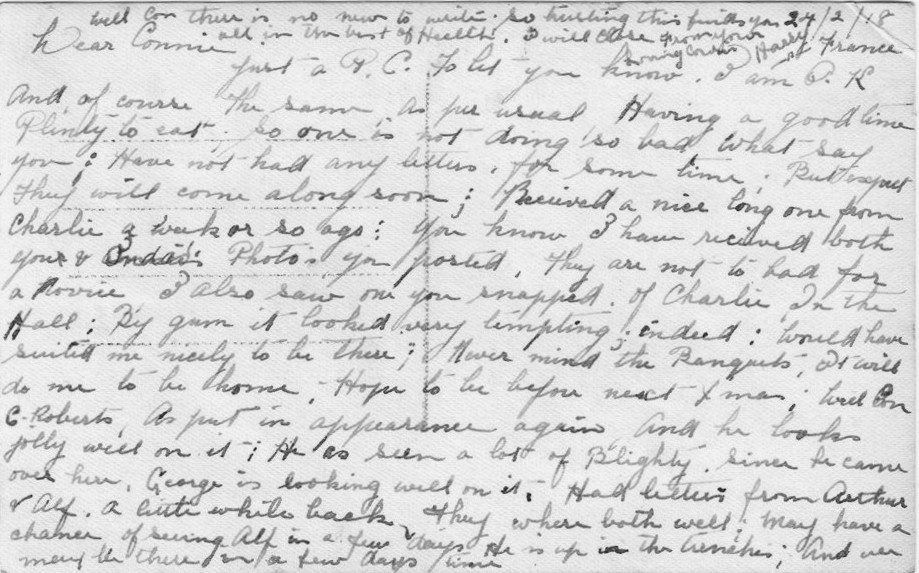 24/2/18
France
Dear Connie
Just a P.C. To let you know. I am O.K
And, of course The same, as per usual Having a good time
Plenty to eat. So one is not doing so bad, what say
you; Have not had any letters, for some time; But expect
They will come along soon; Received a nice long one from
Charlie a week or so ago: You know I have recieved both
your & Photos you posted, They are not to bad for
a Novice I also saw one you snapped. of Charlie In the
Hall; By gum it looked very tempting; indeed: Would have
suited me nicely to be there; Never mind the Banquets, It will
do me to be home, Hope to be before next Xmas; Well Con
C. Roberts, As put in appearance again, And he looks
jolly well on it; He as seen a lot of Blighty, since he came
over here. George is looking well on it; Had letters from Arthur
& Alf. A little while back, They where both well; May have a
chance of seeing Alf in a few days He is up in the trenches; And we
may be there in a few days time
Well Con there is no new to write. So trusting this finds you
all in the best of Health. I will close From your
loving Cousin Harry